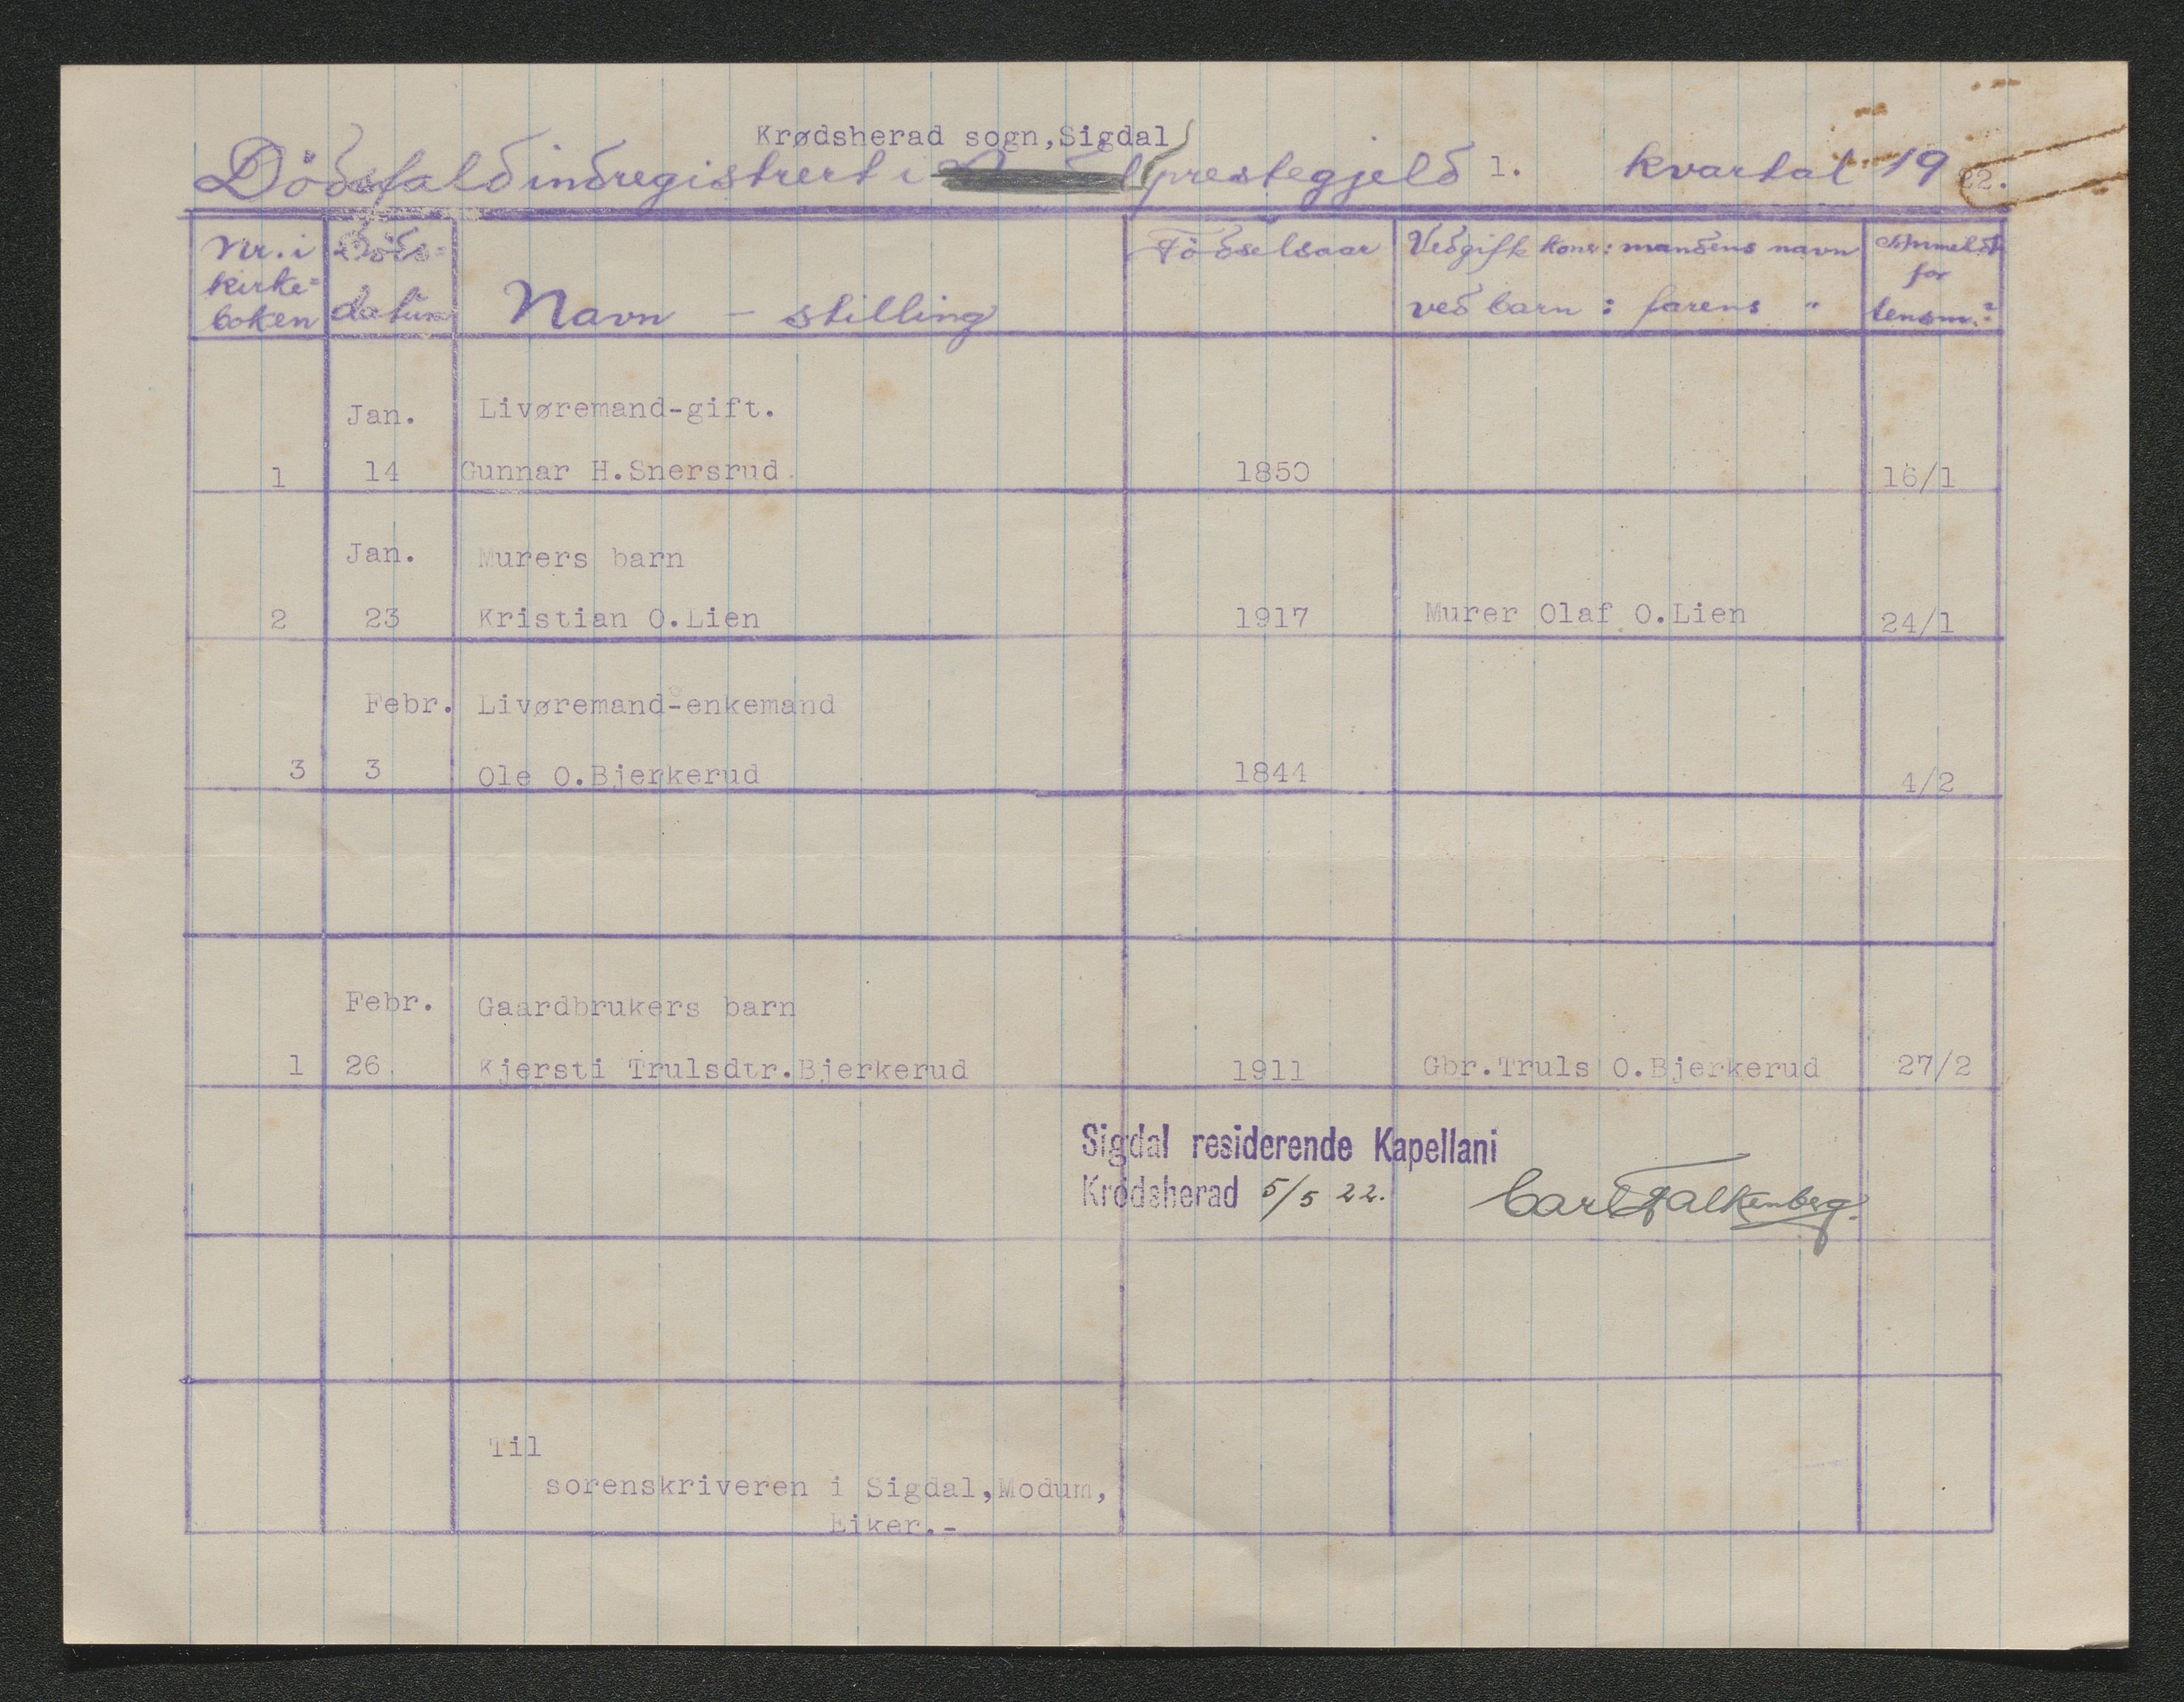 Krødsherad sogn, Sigdal
Dödsfald indregistrert i prestegjeld 1. kvartal 1922.
Nr. i kirke= boken
Döds= datum
Navn - stilling
Födselsaar
Ved gift kone: mandens navn
ved barn: farens "
Anmeldt for lensm.?
Jan. Livøremand-gift.
1 14 Gunnar H.Snersrud. 1850 16/1
Jan. Murers barn
2 23 Kristian O.Lien 1917 Murer Olaf O.Lien 24/1
Febr. Livøremand-enkemand
3 3 Ole O.Bjerkerud 1844 4/2
Febr. Gaardbrukers barn
1 26 Kjersti Trulsdtr.Bjerkerud 1911 Gbr.Truls O.Bjerkerud 27/2
Sigdal residerende Kapellani
Krødsherad 5/5 22. Carl Falkenberg.
Til
sorenskriveren i Sigdal,Modum,
Eiker.-